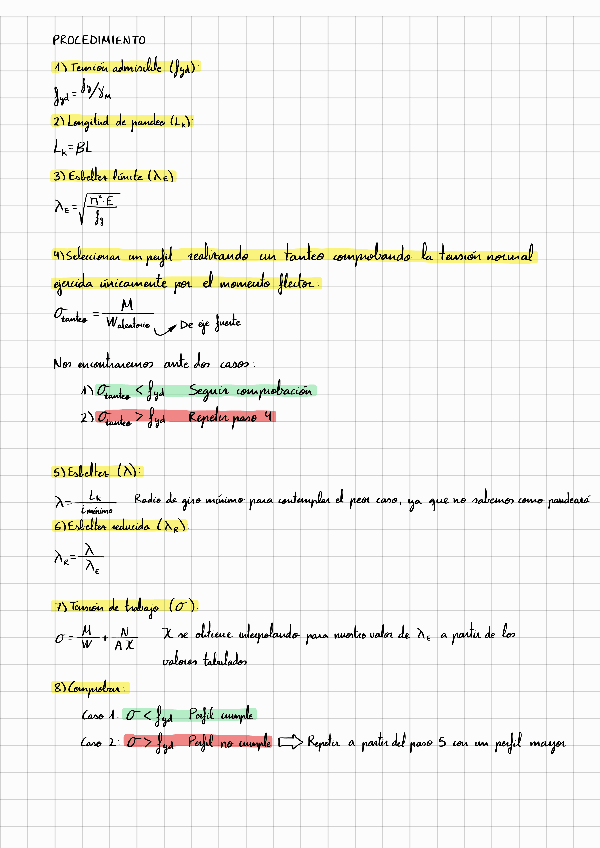 PROCEDIMIENTO
1) Tensión admisible (fyd):
fyd = fy/γM
2) Longitud de pandeo (Lk):
Lk = βL
3) Esbeltez límite (λE)
λE = √(π²·E / fy)
4) Seleccionar un perfil realizando un tanteo comprobando la tensión normal
ejercida únicamente por el momento flector.
σtanteo = M / Waleatorio → De eje fuerte
Nos encontraremos ante dos casos:
1) σtanteo < fyd Seguir comprobación
2) σtanteo > fyd Repetir paso 4
5) Esbeltez (λ):
λ = Lk / imínimo Radio de giro mínimo para contemplar el peor caso, ya que no sabemos como pandeará
6) Esbeltez reducida (λR)
λR = λ / λE
7) Tensión de trabajo (σ).
σ = M/W + N/Aχ χ se obtiene interpolando para nuestro valor de λE a partir de los
valores tabulados
8) Comprobar:
Caso 1: σ < fyd Perfil cumple
Caso 2: σ > fyd Perfil no cumple ⇒ Repetir a partir del paso 5 con un perfil mayor